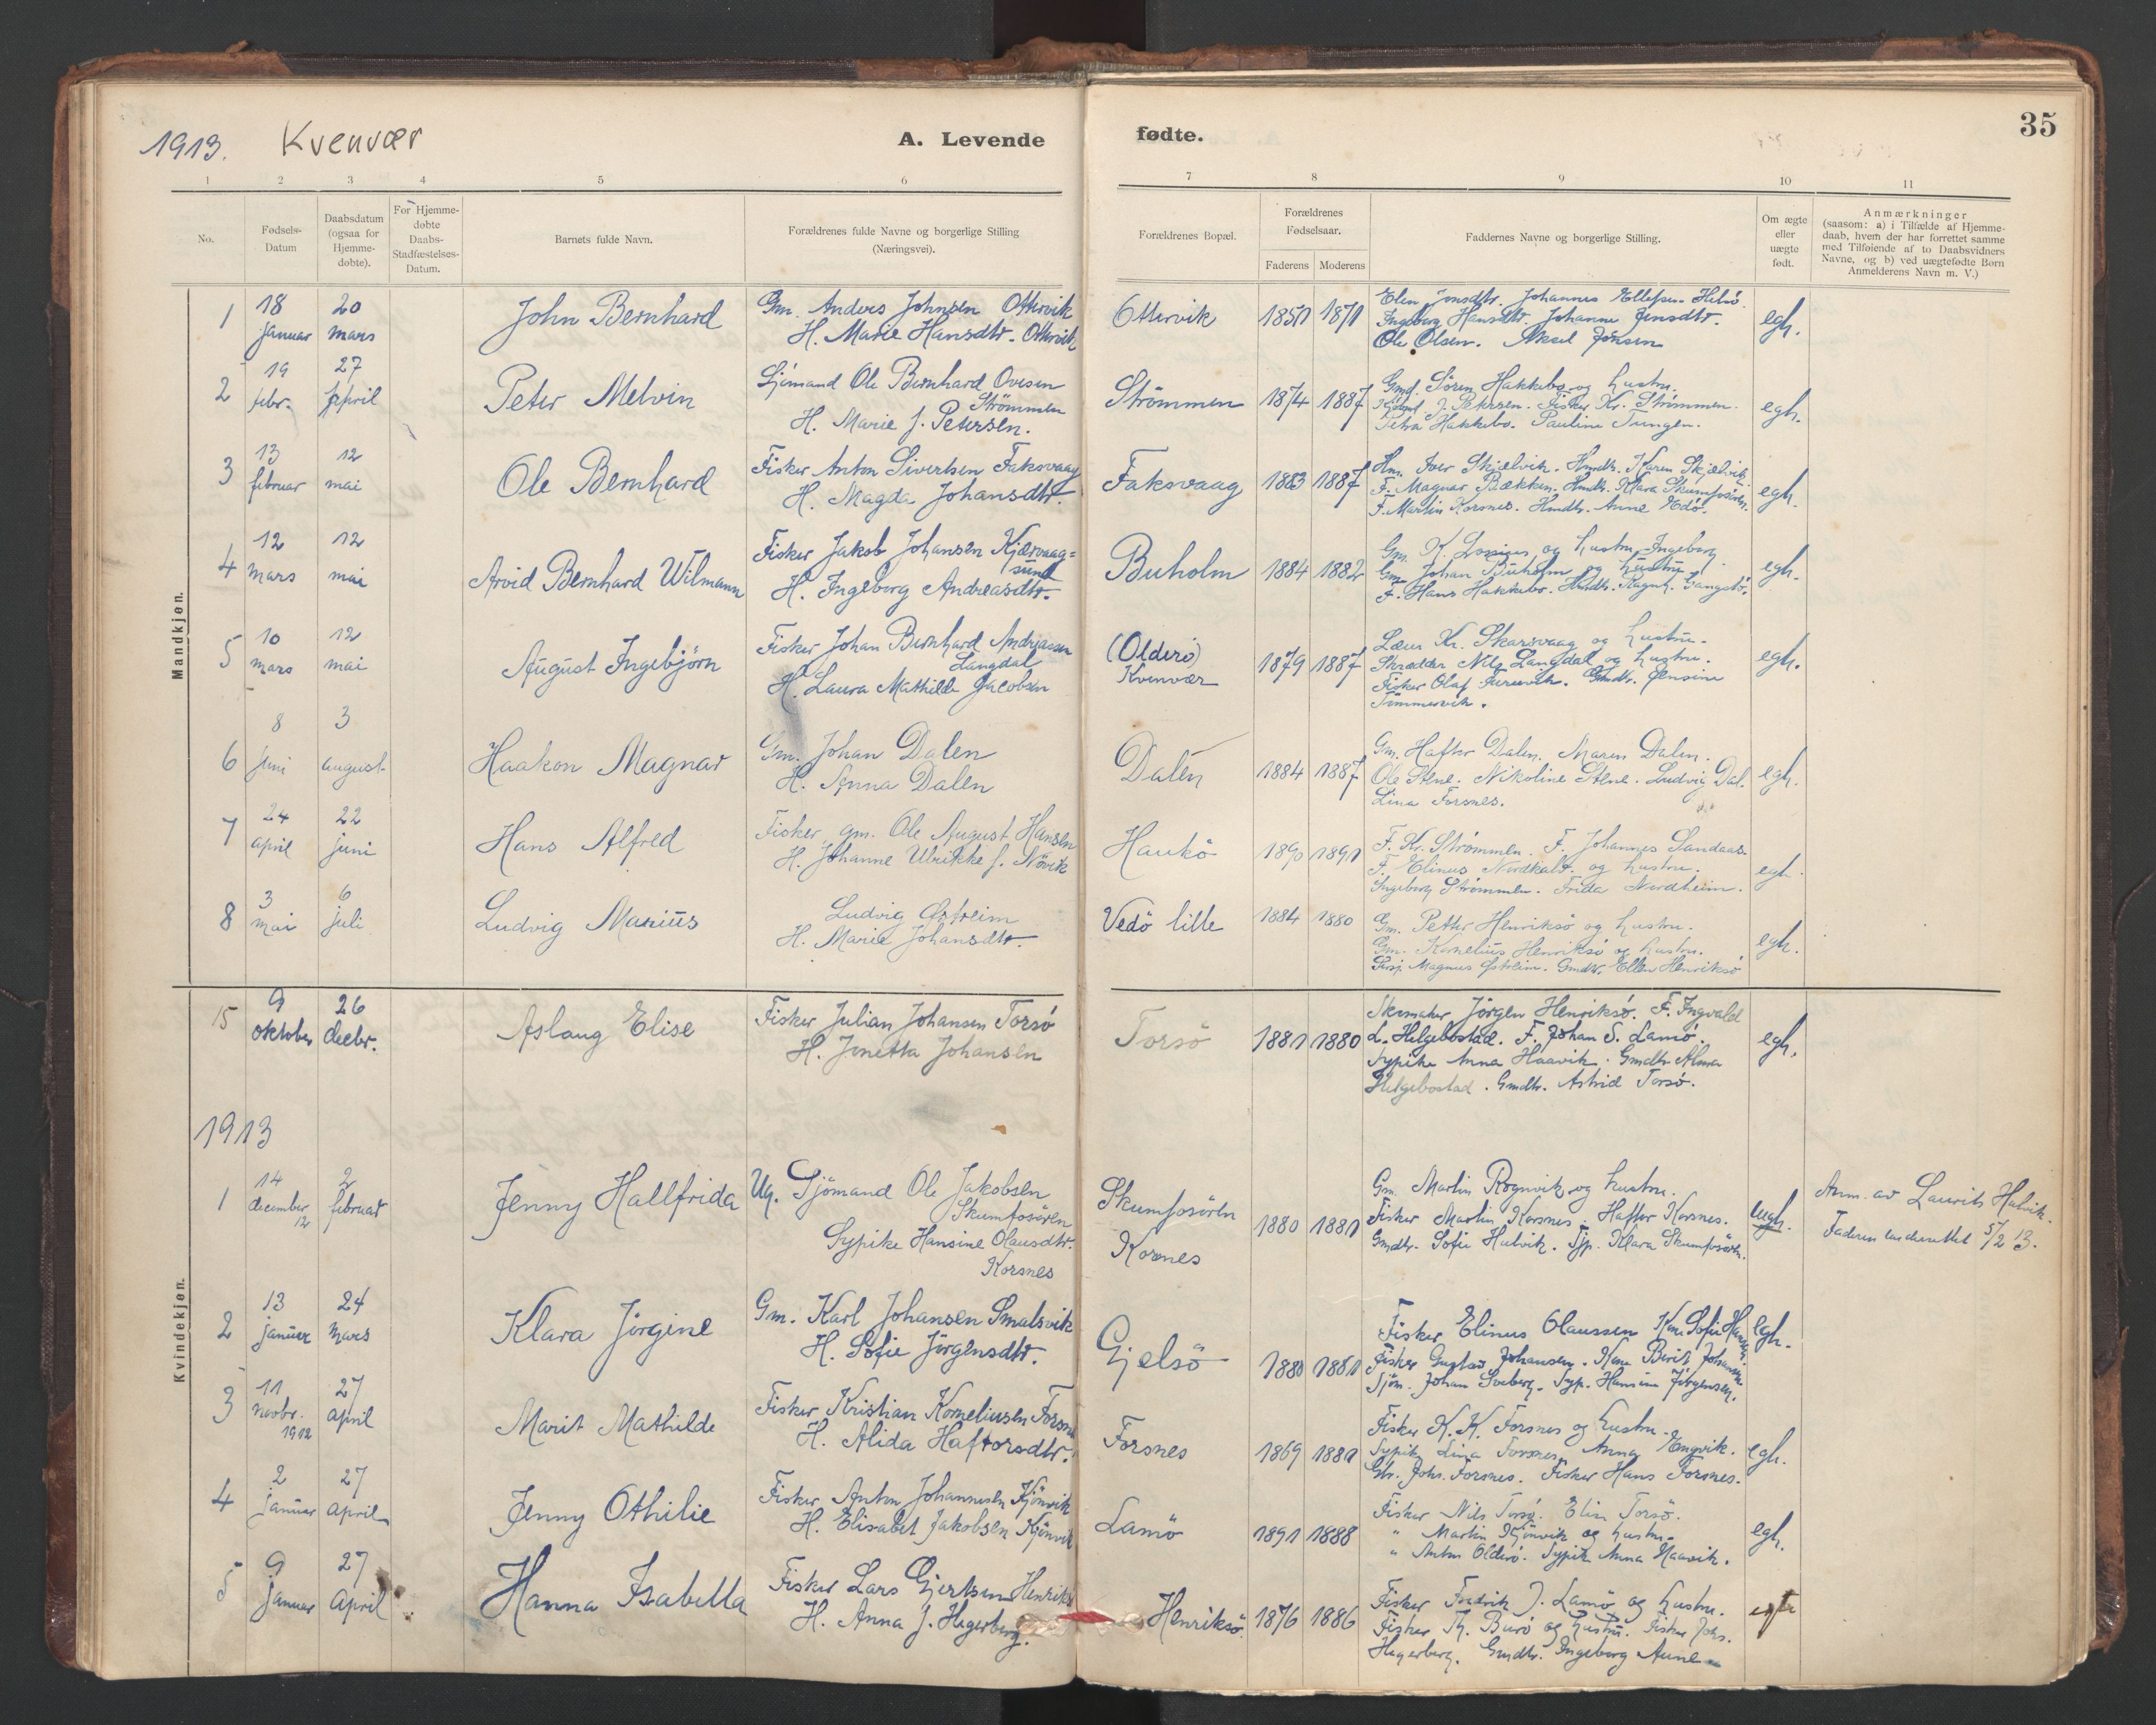 1913. Kvenvær
A. Levende fødte.
35
1 2 3 4 5 6 7 8 9 10 11
No.
Fødsels-
Datum
Daabsdatum
(ogsaa for
Hjemme-
døbte).
For Hjemme-
døbte
Daabs-
Stadfæstelses-
Datum.
Barnets fulde Navn.
Forældrenes fulde Navne og borgerlige Stilling
(Næringsvei).
Forældrenes Bopæl.
Forældrenes
Fødselsaar.
Faderens Moderens
Faddernes Navne og borgerlige Stilling.
Om ægte
eller
uægte
født.
Anmærkninger
(saasom: a) i Tilfælde af Hjemme-
daab, hvem der har forrettet samme
med Tilføiende af to Daabsvidners
Navne, og b) ved uægtefødte Børn
Anmelderens Navn m. V.)
Mandkjøn.
1 18 januar 20 mars John Bernhard
Gm. Anders Johnsen Ottervik
H. Marie Hansdtr. Ottervik
Ottervik 1851 1871
Elen Jonsdtr. Johannes Ellefsen Helsö.
Ingeborg Hansdtr. Johanne Jensdtr.
Ole Olsen. Aksel Johnsen
egh.
2 19 febr. 27 april Peter Melvin
Sjömand Ole Bernhard Ovesen
Strömmen
H. Marie J. Petersen.
Strömmen 1874 1887
Gmd. Sören Hakkebo og hustru.
J. Petersen. Fisker Kr. Strömmen.
Petra Hakkebo. Pauline Tungen.
egh.
3 13 februar 12 mai Ole Bernhard
Fisker Anton Sivertsen Faksvaag
H. Magda Johansdtr.
Faksvaag 1883 1887
Gm. Iver Skjælvik. Gmdtr. Karen Skjælvik.
F. Magnar Bækken. Gmdtr. Klara Skumfosören.
F. Martin Korsnes. Gmdtr. Anne Edö.
egh.
4 12 mars 12 mai Arvid Bernhard Wilmann
Fisker Jakob Johansen Kjærvaag=
sund
H. Ingeborg Andreasdtr.
Buholm 1884 1882
Gm. K. Lossius og hustru Ingeborg
Gm. Johan Buholm og hustru
F. Hans Hakkebo. Gmdtr. Ragnh.
egh.
5 10 mars 12 mai August Ingebjörn
Fisker Johan Bernhard Andreassen
Langdal
H. Laura Mathilde Jacobsen
(Olderö)
Kvenvær
1879 1887
Lærer Kr. Skarsvaag og hustru.
Skrædder Nils Langdal og hustru.
Fisker Olaf Fureuvik. Gmdtr. Jensine
Timmervik.
egh.
6 8 juni 3 august Haakon Magnar
Gm. Johan Dalen
H. Anna Dalen
Dalen 1884 1887
Gm. Haftor Dalen. Maren Dalen.
Ole Stene. Nikoline Stene. Ludvig Dal.
Lina Forsnes.
egh.
7 24 april 22 juni Hans Alfred
Fisker gm. Ole August Hansen
H. Johanne Ulrikke J. Növik
Haukö 1890 1891
F. Kr. Strömmen. F. Johannes Sandaas.
F. Elinus Nordkalv. og hustru.
Ingeborg Strömmen. Frida Nordheim.
egh.
8 3 mai 6 juli Ludvig Marius
Ludvig Östreim
H. Marie Johansdtr.
Vedö lille 1884 1880
Gm. Petter Henriksö og hustru.
Gm. Kornelius Henriksö og hustru.
Magnus Östreim. Gmdtr. Ellen Henriksö
egh.
15 9 oktober 26 decbr. Aslaug Elise
Fisker Julian Johansen Torsö
H. Jonetta Johansen
Torsö 1881 1880
Skomaker Jörgen Henriksö. F. Ingvald
L. Helgebostad. F. Johan S. Lamö.
Sypike Anna Haavik. Gmdtr. Alma
Helgebostad. Gmdtr. Astrid Torsö.
egh.
1913
Kvindekjøn.
1 14 december 12 2 februar Jenny Hallfrida
Ug. Sjömand Ole Jakobsen
Skumfosören
Sypike Hansine Olausdtr.
Korsnes
Skumfosören
Korsnes
1880 1881
Gm. Martin Rognvik og hustru.
Fisker Martin Korsnes. Haftor Korsnes.
Gmdtr. Sofie Hulvik. Syp. Klara Skumfosören.
uegh.
Anm. av Laurits Halvik.
Faderen underrettet 5/2 13.
2 13 januar 24 mars Klara Jörgine
Gm. Karl Johansen Smalsvik
H. Sofie Jörgensdtr.
Gjelsö 1880 1881
Fisker Elinus Olaussen Kone Sofie Hansen.
Fisker Gustav Johansen. Kone Berit Johansen.
Sjöm. Johan Soeberg. Syp. Hansine Jörgensen.
egh.
3 11 novbr. 1912 27 april Marit Mathilde
Fisker Kristian Korneliusen Forsnes
H. Alida Haftorsdtr.
Forsnes 1869 1881
Fisker K. K. Forsnes og hustru.
Sypike Lina Forsnes. Anna Engvik.
Joh. Forsnes. Fisker Hans Forsnes.
egh.
4 2 januar 27 april Jenny Othilie
Fisker Anton Johannesen Kjönvik
H. Elisabet Jakobsen Kjönvik
Lamö 1891 1888
Fisker Nils Torsö. Elin Torsö.
" Martin Kjönvik og hustru.
" Anton Olderö. Sypike Anna Haavik.
egh.
5 9 januar 27 april Hanna Isabella
Fisker Lars Gjertsen Henriksö
H. Anna J. Hegerberg.
Henriksö. 1876 1886
Fisker Fredrik J. Lamö og hustru.
Fisker Th. Burö og hustru. Fisker Johs.
Hegerberg. Gmdtr. Ingeborg Aune
egte